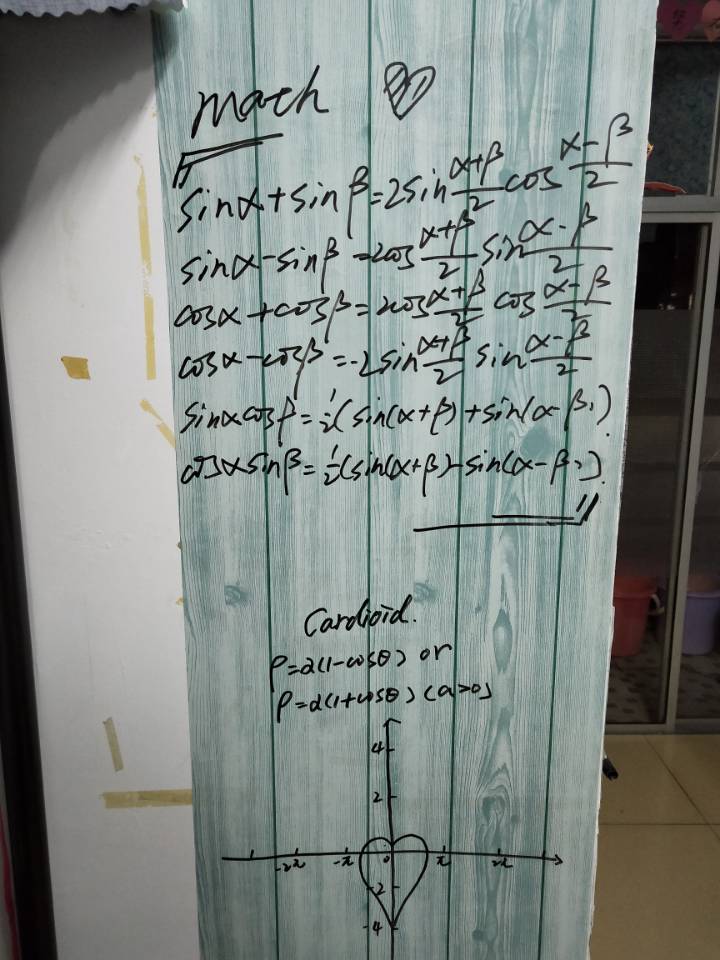 math
sinα+sinβ=2sin (α+β)/2 cos (α-β)/2
sinα-sinβ=2cos (α+β)/2 sin (α-β)/2
cosα+cosβ=2cos (α+β)/2 cos (α-β)/2
cosα-cosβ=-2sin (α+β)/2 sin (α-β)/2
sinαcosβ=½(sin(α+β)+sin(α-β))
cosαsinβ=½(sin(α+β)-sin(α-β))
Cardioid.
ρ=a(1-cosθ) or
ρ=a(1+cosθ) (a>0)
4
2
-2π -π 0 π 2π
-2
-4